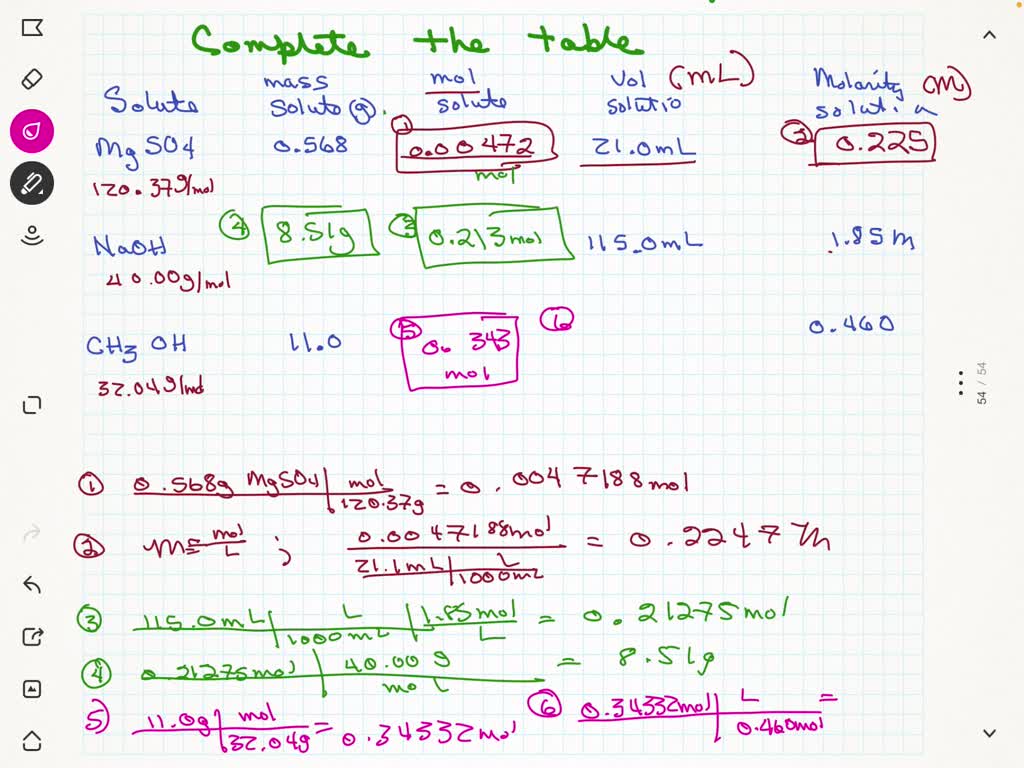 Complete the table
Solute mass solute (g). mol solute Vol (mL) solutio Molarity (M) solution
MgSO4 0.568 ① 0.00472 mol 21.0mL ② 0.225
120.37g/mol
NaOH ④ 8.51g ③ 0.213mol 115.0mL 1.85 M
40.00g/mol
CH3 OH 11.0 ⑤ 0.343 mol ⑥ 0.460
32.04g/mol
54 / 54
① 0.568g MgSO4 | mol / 120.37g = 0.0047188mol
② M = mol/L ; 0.0047188mol / 21.1mL | L / 1000mL = 0.2247 M
③ 115.0mL | L / 1000mL | 1.85mol / L = 0.21275mol
④ 0.21275mol | 40.00 g / mol = 8.51g
5) 11.0g | mol / 32.04g = 0.34332mol
⑥ 0.34332mol | L / 0.460mol =